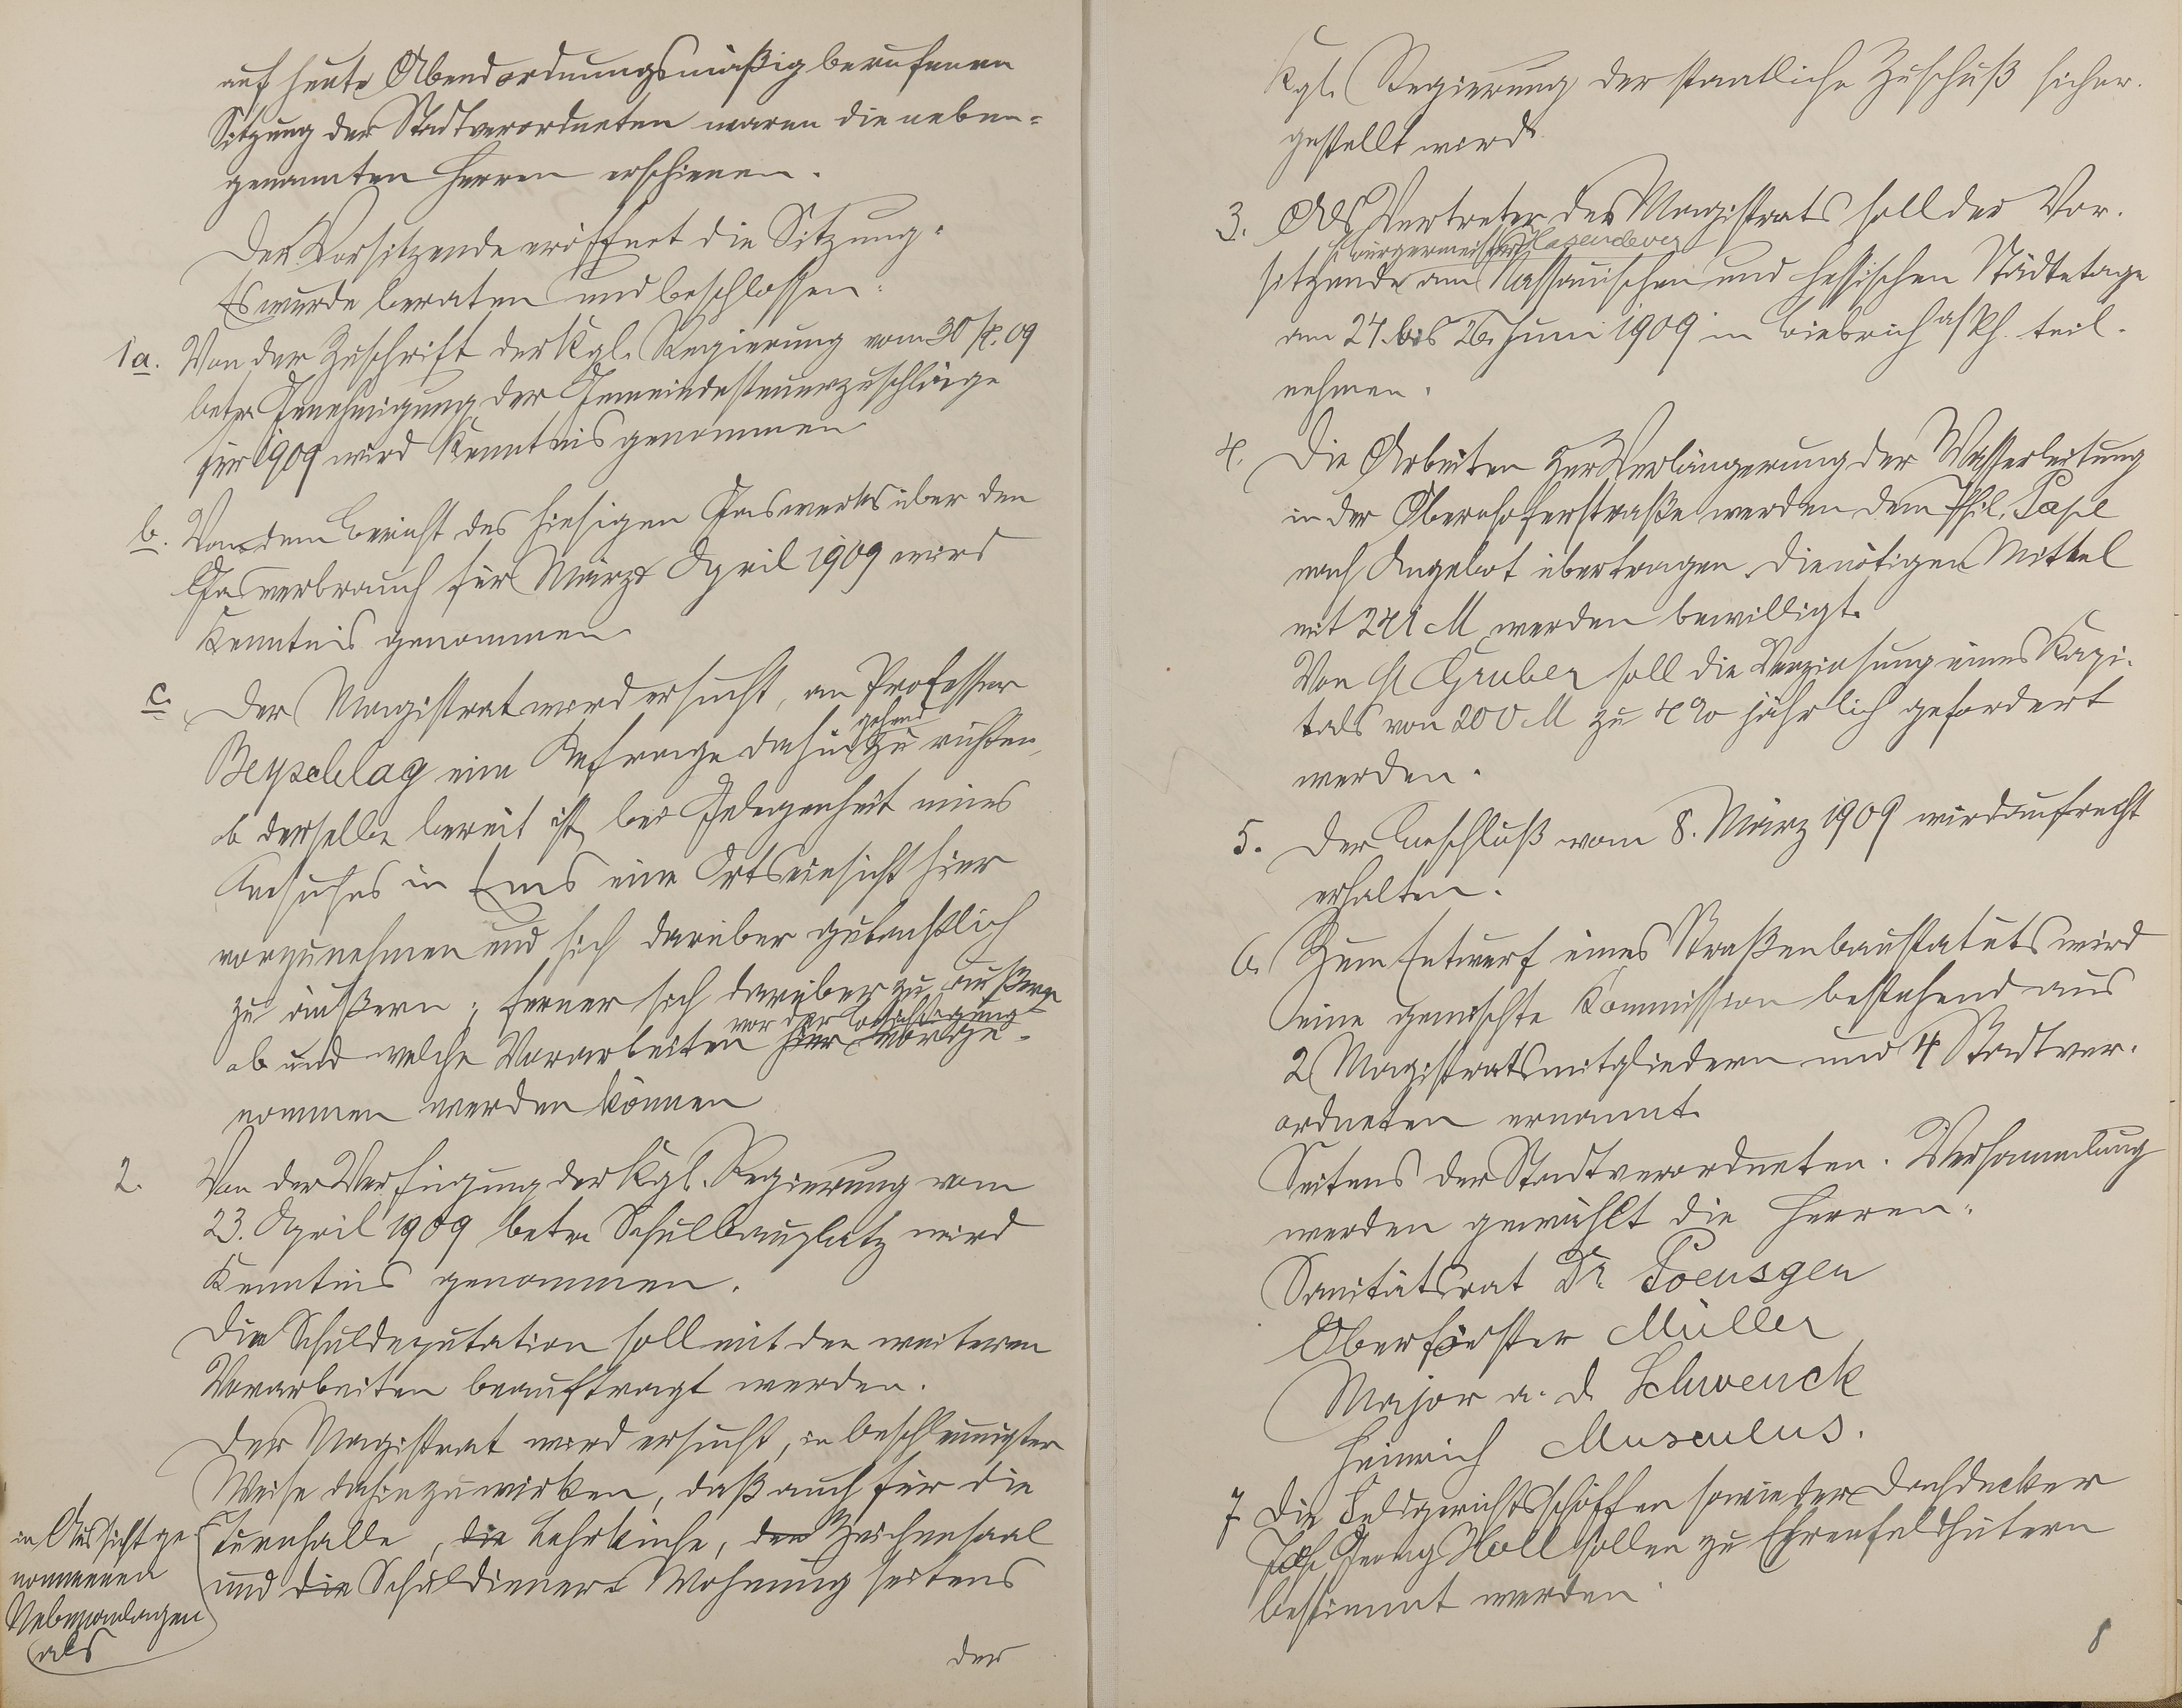 auf heute Abend ordnungsmäßig berufenen
Sitzung der Stadtverordneten waren die neben-
genannten Herren erschienen.
Der Vorsitzende eröffnet die Sitzung.
Es wurde beraten und beschlossen:
1a. Von der Zuschrift der Kgl. Regierung vom 30/4. 09
betr. Genehmigung der Gemeindesteuerzuschläge
für 1909 wird Kenntnis genommen
b. Von dem Bericht des hiesigen Gaswerks über den
Gasverbrauch für März April 1909 wird
Kenntnis genommen
c. Der Magistrat wird ersucht, an Professor
gehend
Beyschlag eine Anfrage dahin zu richten,
ob derselbe bereit ist, bei Gelegenheit eines
Besuches in Ems eine Ortseinsicht hier
vorzunehmen und sich darüber gutachtlich
zu äußern; ferner sich darüber zu äußern
vor der
ob und welche Vorarbeiten hier vorge-
nommen werden können
2. Von der Verfügung der Kgl. Regierung vom
23. April 1909 betr. Schulbauplatz wird
Kenntnis genommen.
Die Schuldeputation soll mit den weiteren
Vorarbeiten beauftragt werden.
Der Magistrat wird ersucht, in beschleunigter
Weise dahin zu wirken, daß auch für die
in Aussicht ge
nommenen
Nebenanlagen
als
Turnhalle, die Lehrküche, den Zeichensaal
und die Schuldieners Wohnung seitens
der
Kgl. Regierung der staatliche Zuschuß sicher-
gestellt wird
3. Als Vertreter des Magistrats soll der Vor-
H. Bürgermeister Hasenclever
sitzende am Nassauischen und Hessischen Städtetage
am 24. bis 26. Juni 1909 in Biebrich a/Rh. teil-
nehmen.
4. Die Arbeiten zur Verlängerung der Wasserleitung
in der Oberhoferstraße werden dem Phil.
nach Angebot übertragen. Die nötigen Mittel
mit 241 M werden bewilligt.
Von H Gruber soll die Verzinsung eines Kapi-
tals von 200 M zu 4% jährlich gefordert
werden.
5. Der Beschluß vom 8. März 1909 wird aufrecht
erhalten.
6. Zum Entwurf eines Straßenbaustatuts wird
eine gemischte Kommission bestehend aus
2 Magistratsmitgliedern und 4 Stadtver-
ordneten ernannt.
Seitens der Stadtverordneten-Versammlung
werden gewählt die Herren:
Sanitätsrat Dr. Poensgen
Oberförster Müller
Major a. D. Schwenck
Heinrich Musculus.
7. Die Feldgerichtsschöffen sowie der Dachdecker
Georg Holl sollen zu Ehrenfeldhütern
bestimmt werden
8